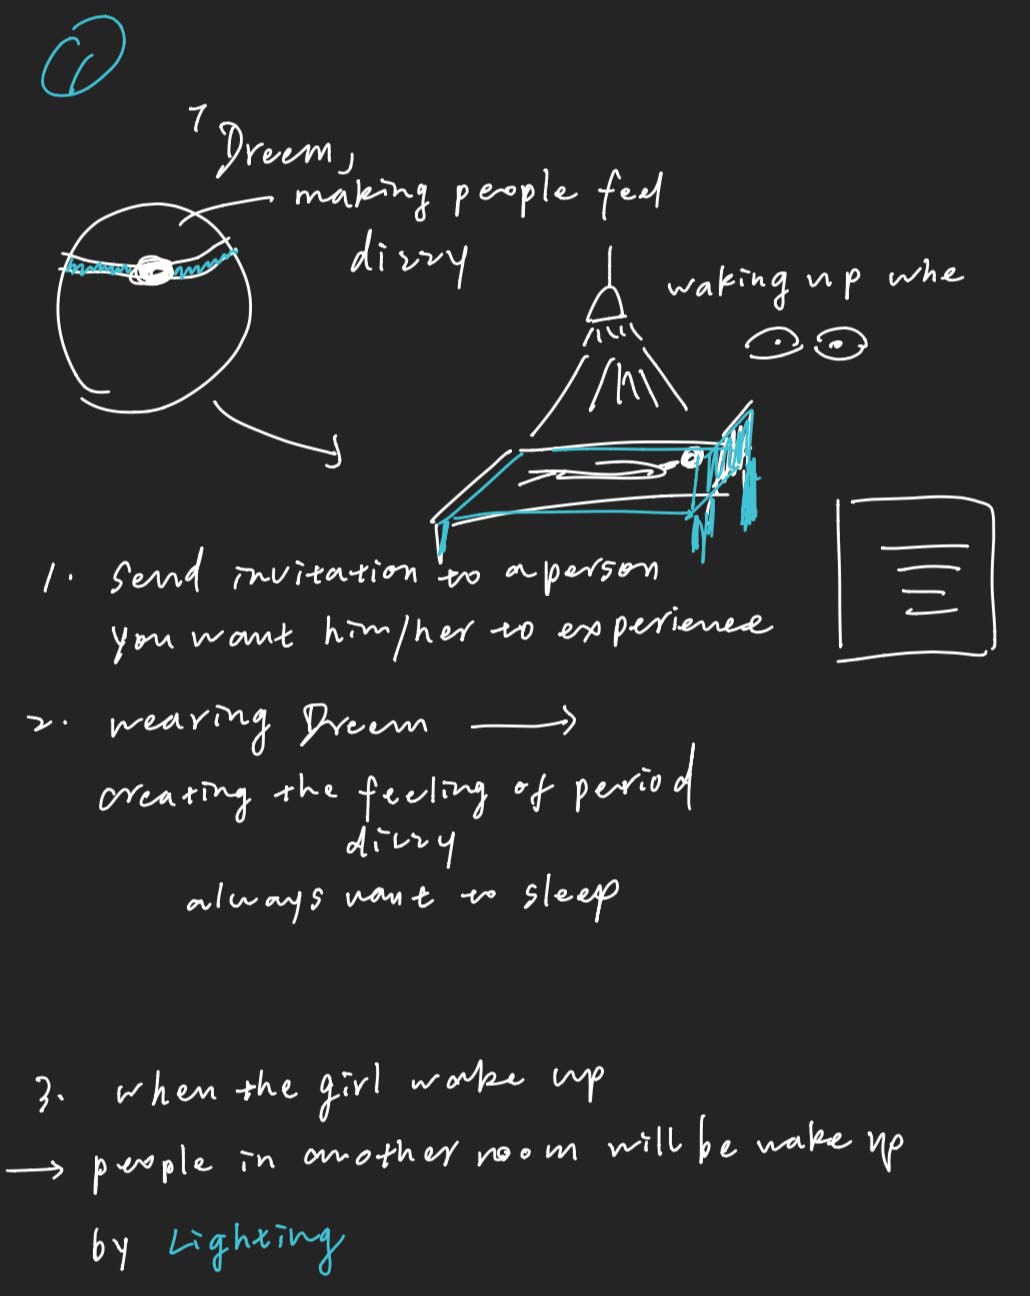 1
Dreem,
making people feel
dizzy
waking up whe
1. Send invitation to a person
you want him/her to experience
2. wearing Dreem →
creating the feeling of period
dizzy
always want to sleep
3. when the girl wake up
→ people in another room will be wake up
by Lighting